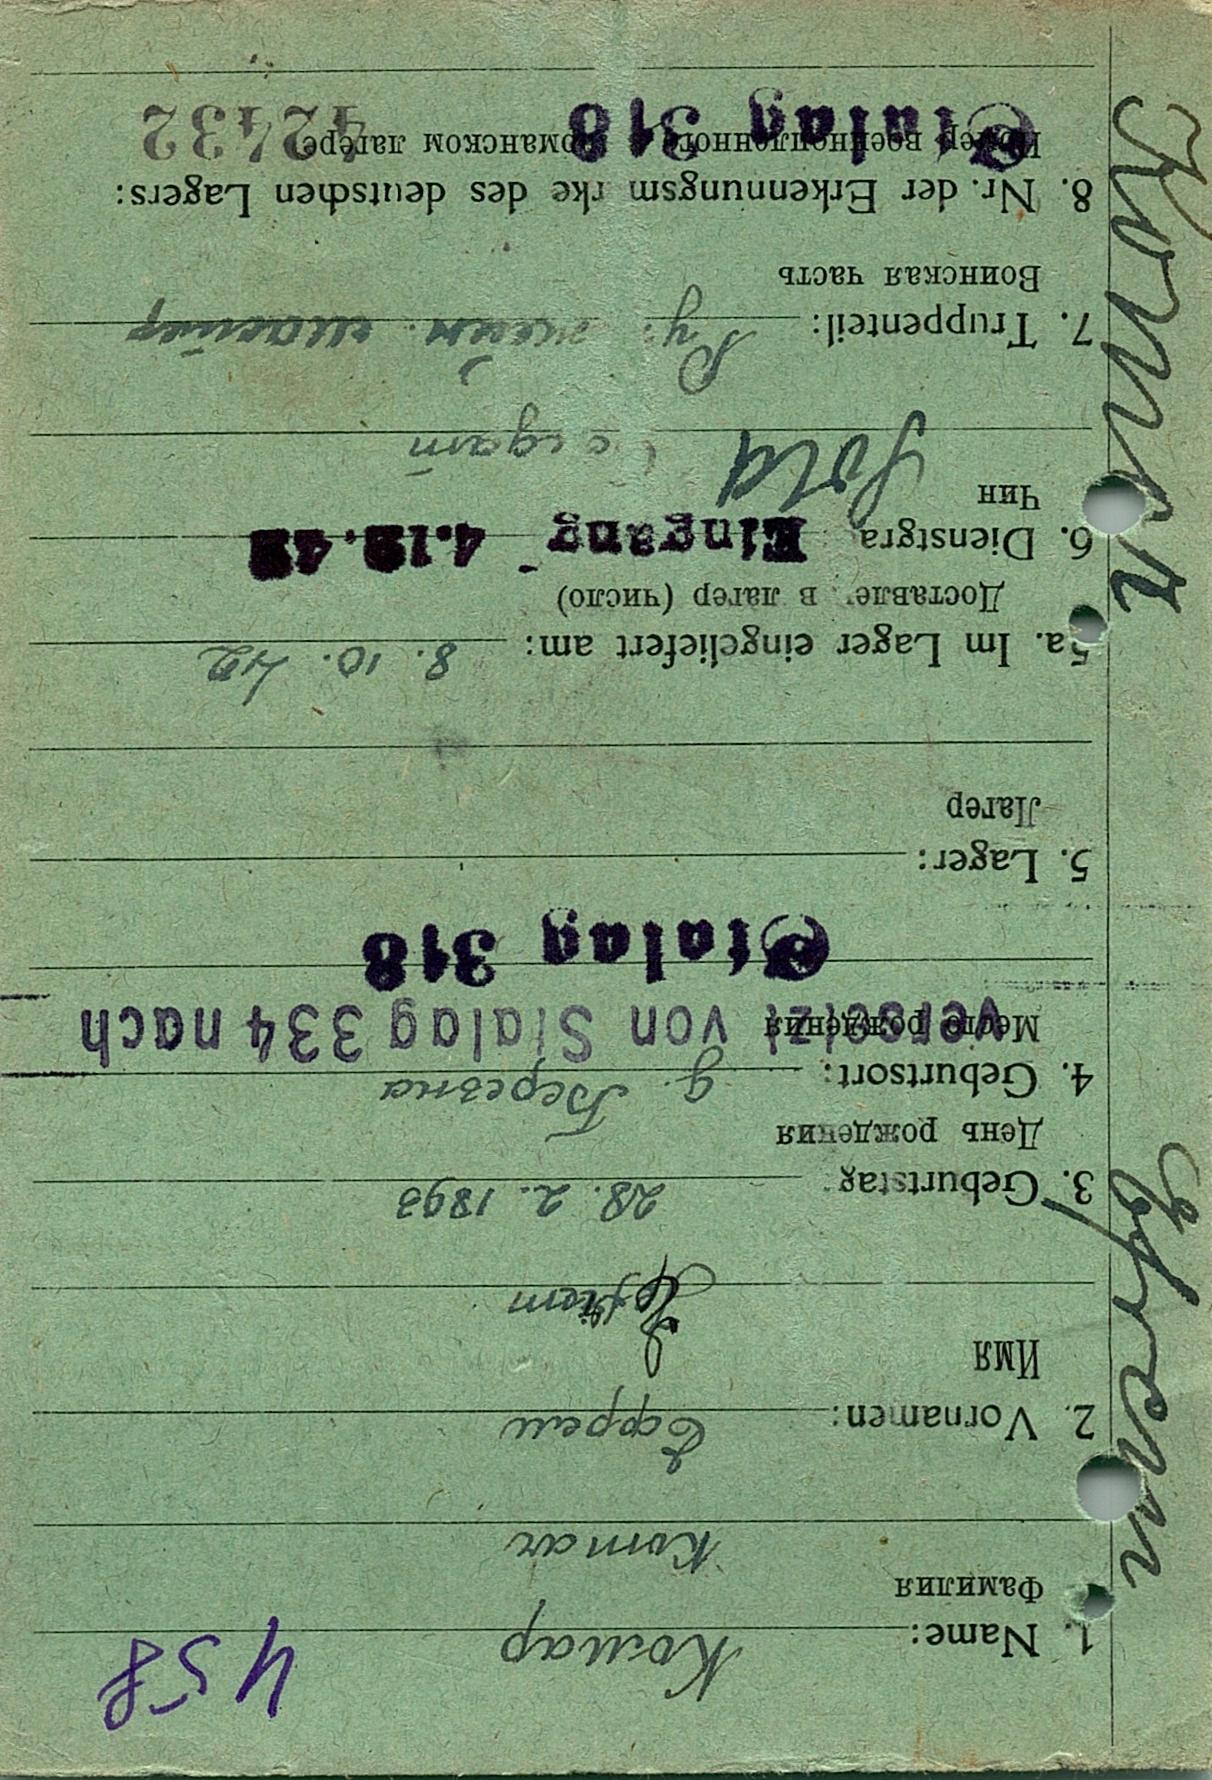 458
1. Name: Комар
Фамилия
Komar
2. Vornamen: Ефрем
Имя
3. Geburtstag: 28. 2. 1893
День рождения
4. Geburtsort: д. Березна
Место рождения
versetzt von Stalag 334 nach
Stalag 318
5. Lager:
Лагер
5a. Im Lager eingeliefert am: 8. 10. 42
Доставле в лагер (число)
6. Dienstgra Eingang 4.12.42
Чин
Sold
Солдат
7. Truppenteil:
Воинская часть
8. Nr. der Erkennungsm rke des deutschen Lagers:
Номер военнопленного в германском лагере
Stalag 318 42432
Komar